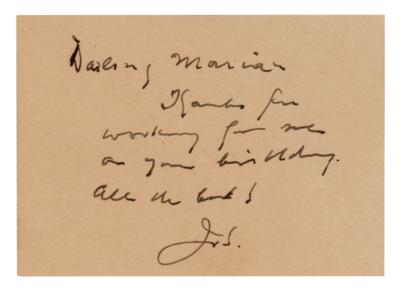 Darling Marian
Thanks for
working for me
on your birthday.
All the best!